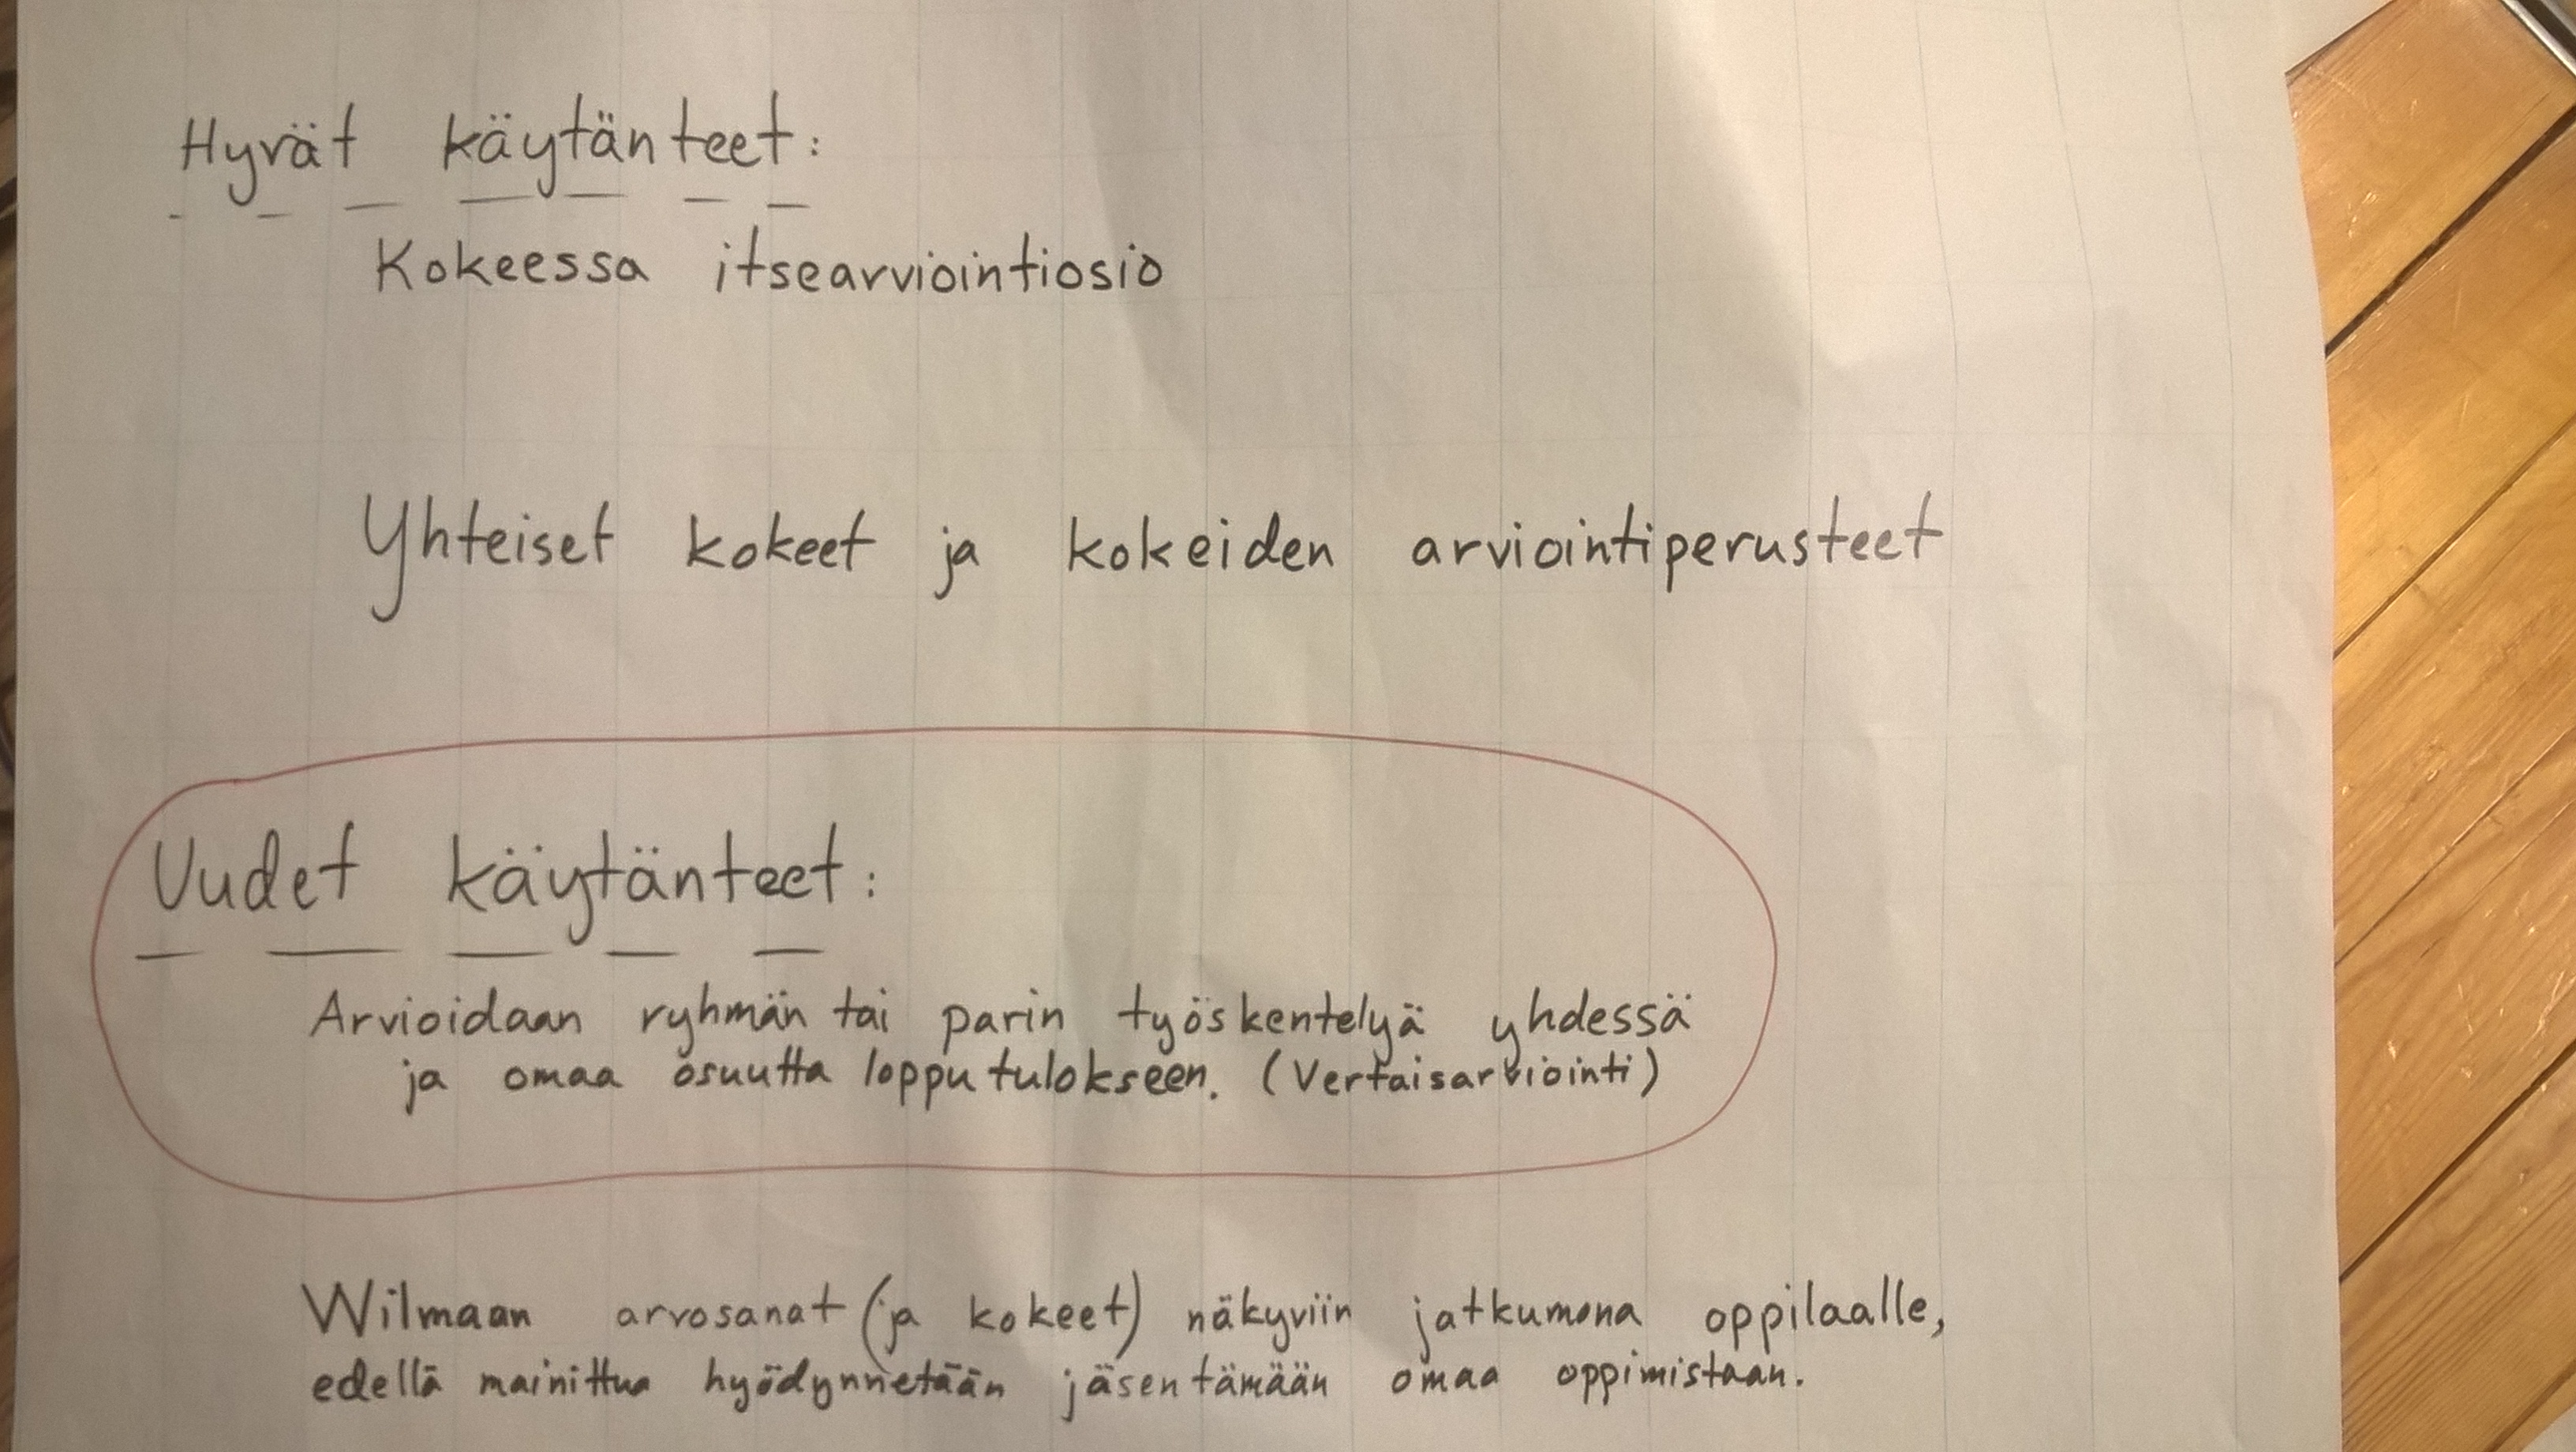 Hyvät käytänteet:
Kokeessa itsearviointiosio
Yhteiset kokeet ja kokeiden arviointiperusteet
Uudet käytänteet:
Arvioidaan ryhmän tai parin työskentelyä yhdessä
ja omaa osuutta lopputulokseen. (Vertaisarviointi)
Wilmaan arvosanat (ja kokeet) näkyviin jatkumona oppilaalle,
edellä mainittua hyödynnetään jäsentämään omaa oppimistaan.